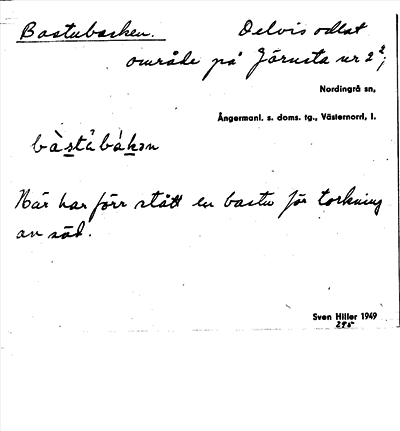 Bastubacken. Delvis odlat
område på Järnsta nr 2²;
Nordingrå sn,
Ångermanl. s. doms. tg., Västernorrl, l.
bàståbákən
Här har förr stått en bastu för torkning
av säd.
Sven Hiller 1949
295